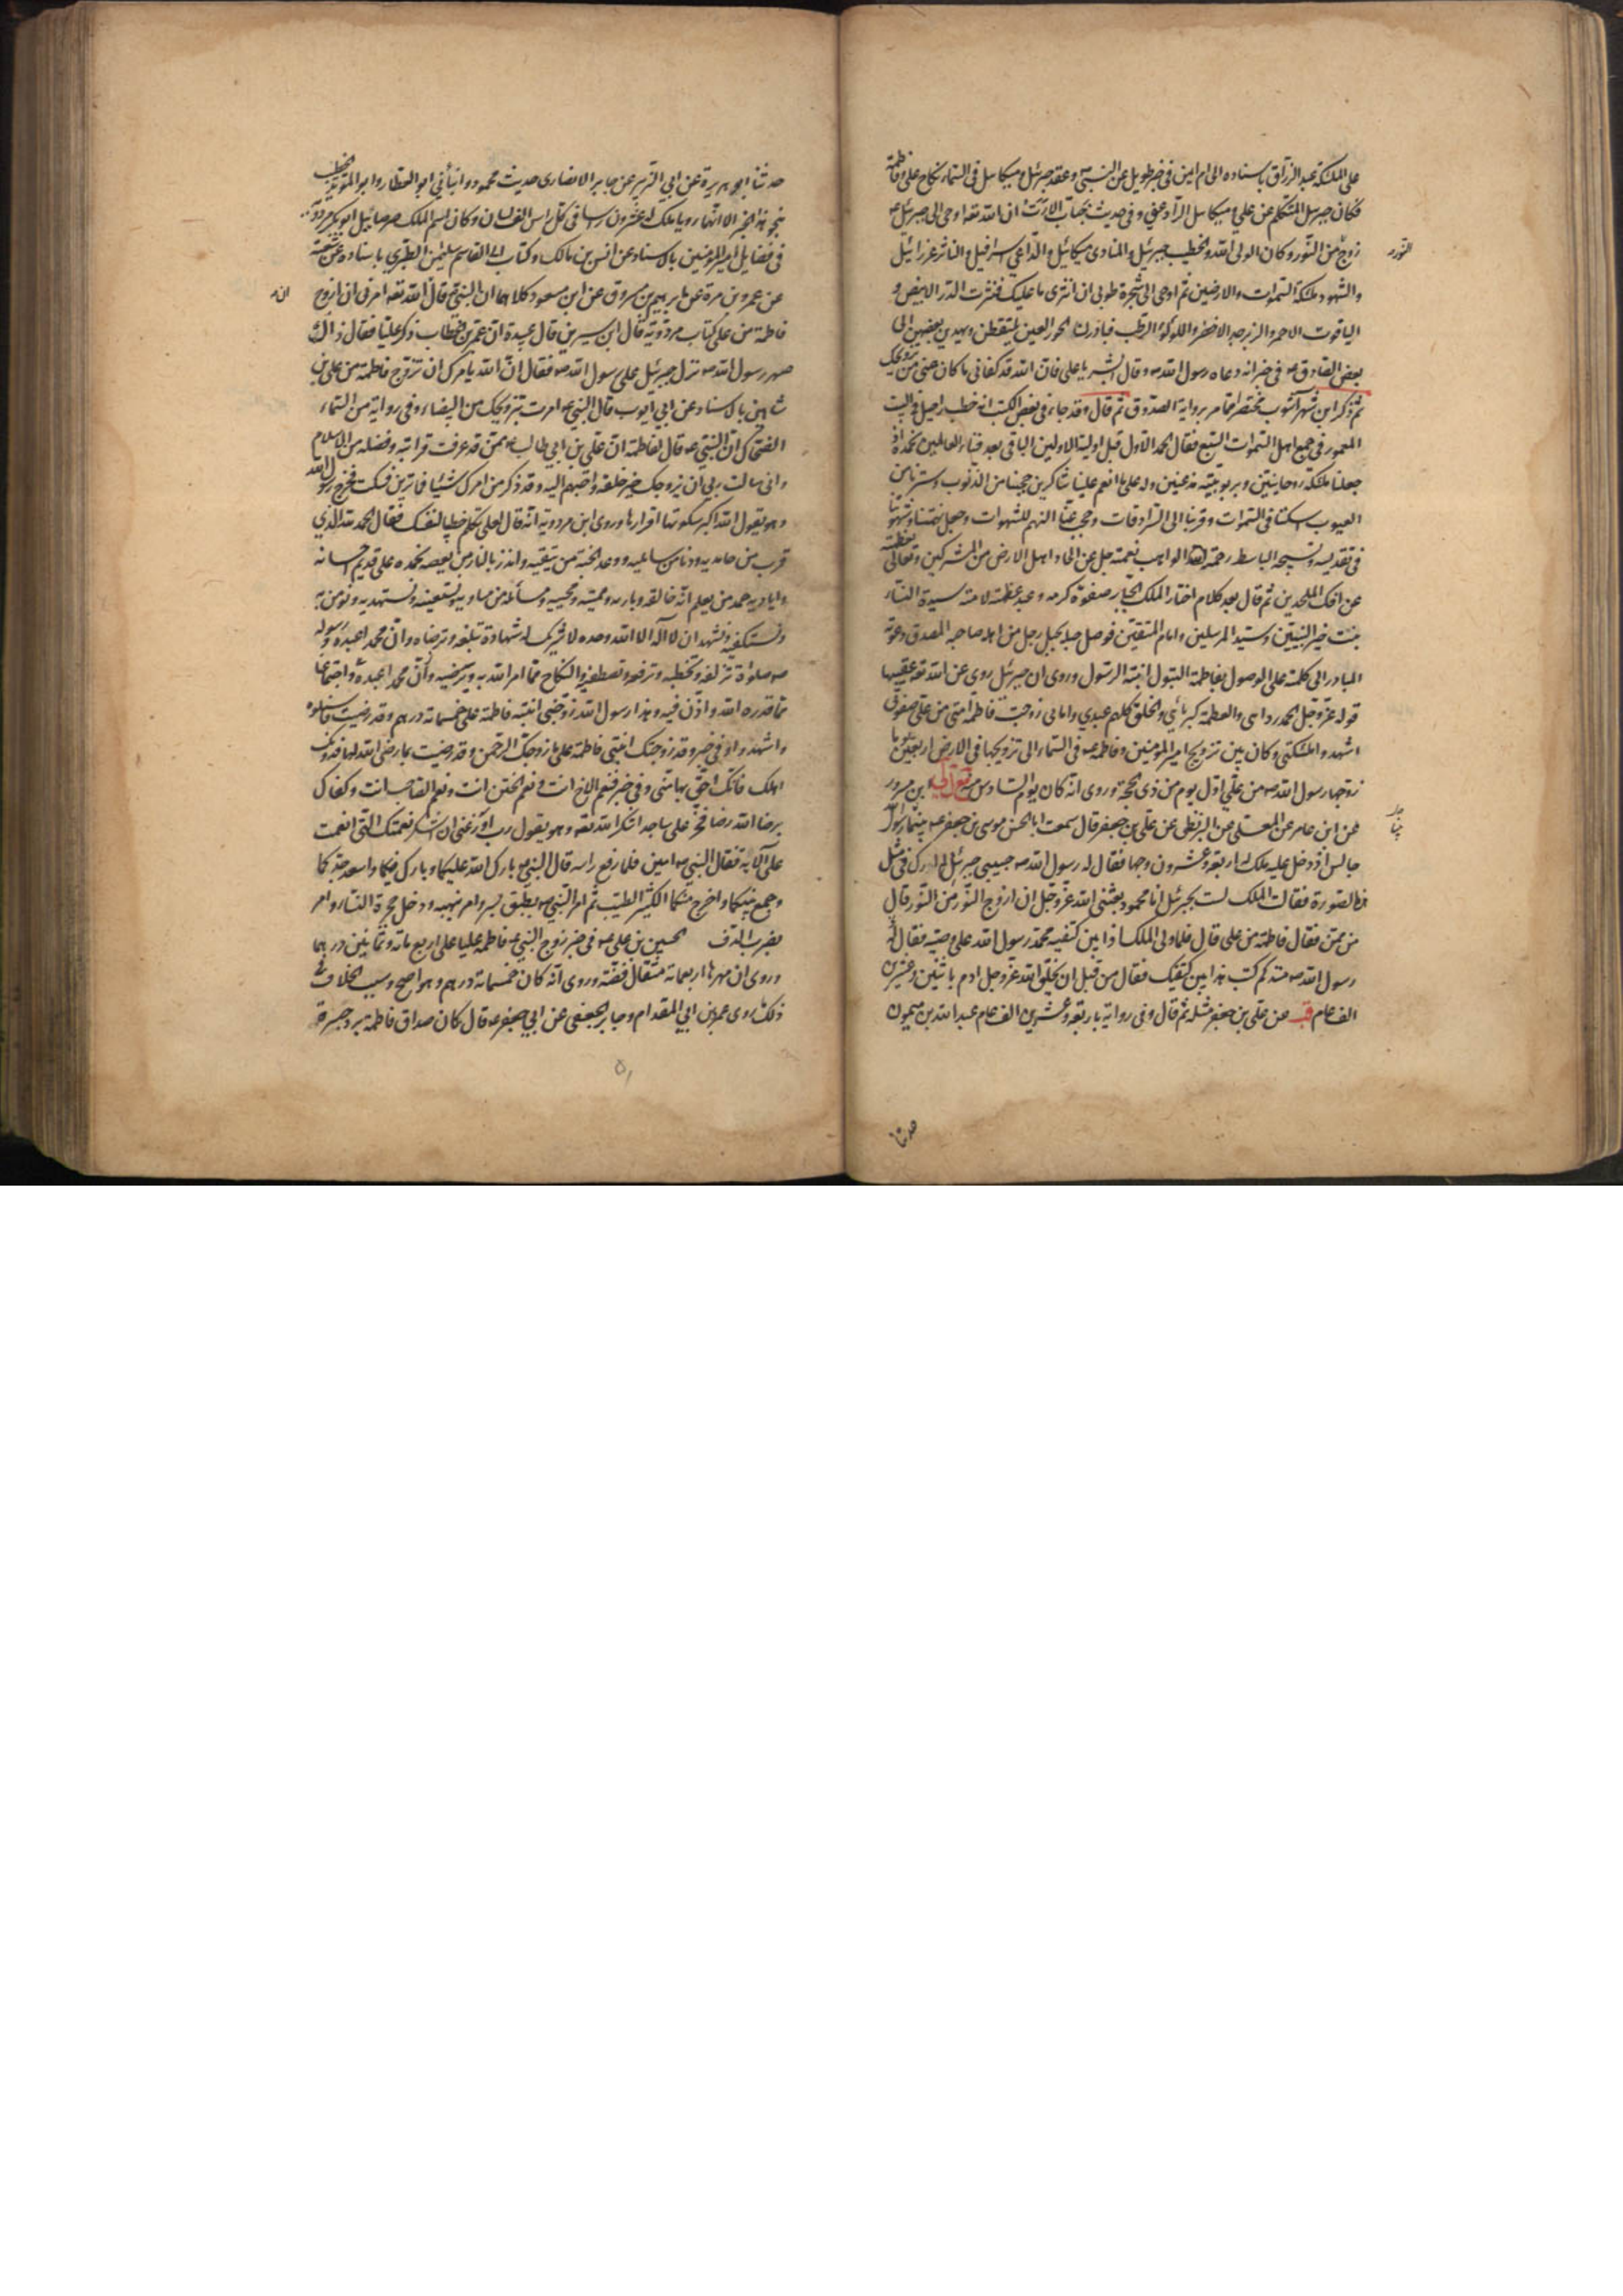 على الملئكة عبد الرزاق باسناده الى ام ايمن فى خبر طويل عن النبى ص وعقد جبرئيل وميكائيل فى السماء نكاح على وفاطمة
فكان جبرئيل المتكلم عن على وميكائيل الراد عنى وفى حديث خباب بن الارت ان الله تعه اوحى الى جبرئيل
زوج من النور وكان الولى الله والخطيب جبرئيل والمنادى ميكائيل والداعى اسرافيل والناثر عزرائيل
والشهود ملئكة السموات والارضين ثم اوحى الى شجرة طوبى ان انثرى ما عليك فنثرت الدر الابيض و
الياقوت الاحمر والزبرجد الاخضر واللؤلؤ الرطب فبادرت الحور العين يلتقطن ويهدين بعضهن الى
بعض الصادق ع فى خبر انه دعاه رسول الله ص وقال ابشر يا على فان الله قد كفانى ما كان همنى من تزويجك
ثم ذكر ابن شهر آشوب مختصرا مما مر برواية الصدوق ثم قال وقد جاء فى بعض الكتب انه خطب راحيل فى البيت
المعمور فى جمع اهل السموات السبع فقال الحمد لله الاول قبل اولية الاولين الباقى بعد فناء العالمين نحمده اذ
جعلنا ملئكة روحانيين وبربوبيته مذعنين وله على ما انعم علينا شاكرين حجبنا من الذنوب وسترنا من
العيوب اسكننا فى السموات وقربنا الى السرادقات وحجب عنا النهم للشهوات وجعل نهمتنا وشهوتنا
فى تقديسه وتسبيحه الباسط رحمته الواهب نعمته جل عن الحاد اهل الارض من المشركين وتعالى بعظمته
عن افك الملحدين ثم قال بعد كلام اختار الملك الجبار صفوة كرمه وعبد عظمته لامته سيدة النساء
بنت خير النبيين وسيد المرسلين وامام المتقين فوصل حبله بحبل رجل من اهله صاحبه المصدق دعوته
المبادر الى كلمته على الوصول بفاطمة البتول ابنة الرسول وروى ان جبرئيل روى عن الله تعه عقيبها
قوله عز وجل الحمد ردائى والعظمة كبريائى والخلق كلهم عبيدى وامائى زوجت فاطمة امتى من على صفوتى
اشهدوا ملئكتى وكان بين تزويج امير المؤمنين وفاطمة ع فى السماء الى تزويجها فى الارض اربعين يوما
زوجها رسول الله ص من على اول يوم من ذى الحجة وروى انه كان يوم السادس منه مع لى ابن مسرور
عن ابن عامر عن المعلى عن البزنطى عن على بن جعفر قال سمعت ابا الحسن موسى بن جعفر ع يقول بينما رسول الله
جالس اذ دخل عليه ملك له اربعة وعشرون وجها فقال له رسول الله ص حبيبى جبرئيل لم ارك فى مثل
هذه الصورة فقال الملك لست بجبرئيل انا محمود بعثنى الله عز وجل ان ازوج النور من النور قال
من ممن فقال فاطمة من على قال فلما ولى الملك اذا بين كتفيه محمد رسول الله على وصيه فقال له
رسول الله ص منذ كم كتب هذا بين كتفيك فقال من قبل ان يخلق الله عز وجل ادم باثنين وعشرين
الف عام قب عن على بن جعفر مثله ثم قال وفى رواية باربعة وعشرين الف عام عبد الله بن ميمون
حدثنا
حدثنا ابو هريرة عن ابى الزبير عن جابر الانصارى حديث محمود وانبأنى ابو العلا العطار وابو المؤيد الخطيب
بنحو هذا الخبر الا انهما رويا ملك له عشرون رأسا فى كل راس الف لسان وكان اسم الملك صرصائيل ابو بكر مردويه
فى فضايل امير المؤمنين بالاسناد عن انس بن مالك وكتاب ابى القاسم سليمن الطبرى باسناده عن شعبة
عن عمرو بن مرة عن ابراهيم عن مسروق عن ابن مسعود كلاهما ان النبى ص قال الله تعه امرنى ان ازوج
فاطمة من على كتاب مردويه قال ابن سيرين قال عبيدة ان عمر بن الخطاب ذكر عليا فقال ذاك
صهر رسول الله ص نزل جبرئيل على رسول الله ص فقال ان الله يامرك ان تزوج فاطمة من على ابن
شاهين بالاسناد عن ابى ايوب قال النبى ص امرت بتزويجك من البيضاء وفى رواية من السماء
الضحاك ان النبى ص قال لفاطمة ان على بن ابى طالب ممن قد عرفت قرابته وفضله من الاسلام
وانى سالت ربى ان يزوجك خير خلقه واحبهم اليه وقد ذكر من امرك شيئا فما ترين فسكتت فخرج رسول الله
وهو يقول الله اكبر سكوتها اقرارها وروى ابن مردويه انه قال لعلى تكلم خطيبا لنفسك فقال الحمد لله الذى
قرب من حامديه ودنا من سائليه ووعد الجنة من يتقيه وانذر بالنار من يعصيه نحمده على قديم احسانه
واياديه حمد من يعلم انه خالقه وباريه ومميته ومحييه ومسائله عن مساويه ونستعينه ونستهديه ونؤمن به
ونستكفيه ونشهد ان لا اله الا الله وحده لا شريك له شهادة تبلغه وترضاه وان محمدا عبده ورسوله
ص صلوة تزلفه وتحظيه وترفعه وتصطفيه والنكاح مما امر الله به ويرضيه واجتماعنا
مما قدره الله واذن فيه وهذا رسول الله زوجنى ابنته فاطمة على خمسمائة درهم وقد رضيت فاسئلوه
واشهدوا وفى خبر وقد زوجتك ابنتى فاطمة على ما زوجك الرحمن وقد رضيت بما رضى الله لها فدونك
اهلك فانك احق بها منى وفى خبر فنعم الاخ انت ونعم الختن انت ونعم الصاحب انت وكفاك
برضا الله رضا فخر على ساجدا شكرا لله تعه وهو يقول رب اوزعنى ان اشكر نعمتك التى انعمت
على الآية فقال النبى ص امين فلما رفع راسه قال النبى ص بارك الله عليكما وبارك فيكما واسعد جدكما
وجمع بينكما واخرج منكما الكثير الطيب ثم امر النبى ص بطبق بسر وامر بنهبه ودخل حجرة النساء وامر
بضرب الدف الحسين بن على ع فى خبر زوج النبى ص فاطمة عليا على اربع مائة وثمانين درهما
وروى ان مهرها اربعمائة مثقال فضة وروى انه كان خمسمائة درهم وهو اصح وسبب الخلاف فى
ذلك ما روى عمرو بن ابى المقدام وجابر الجعفى عن ابى جعفر ع قال كان صداق فاطمة برد حبرة